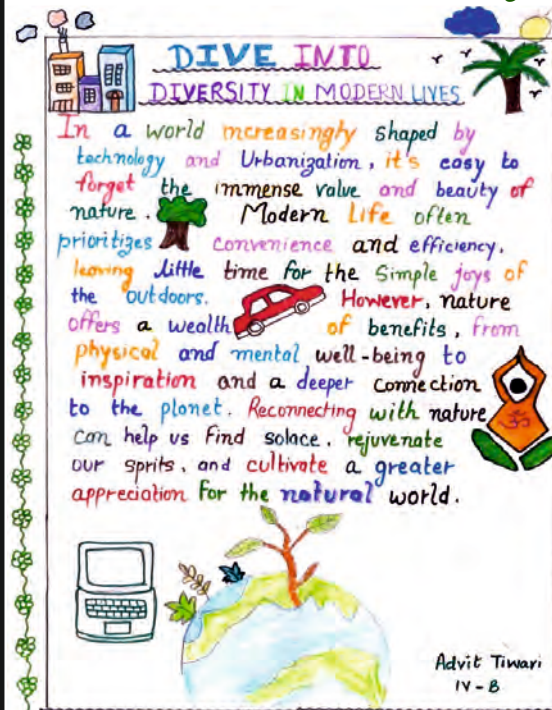 DIVE INTO
DIVERSITY IN MODERN LIVES
In a world increasingly shaped by
technology and Urbanization, it's easy to
forget the immense value and beauty of
nature. Modern Life often
prioritizes convenience and efficiency,
leaving little time for the Simple joys of
the outdoors. However, nature
offers a wealth of benefits, from
physical and mental well-being to
inspiration and a deeper connection
to the planet. Reconnecting with nature
can help us Find solace, rejuvenate
our sprits, and cultivate a greater
appreciation for the natural world.
ॐ
Advit Tiwari
IV-B